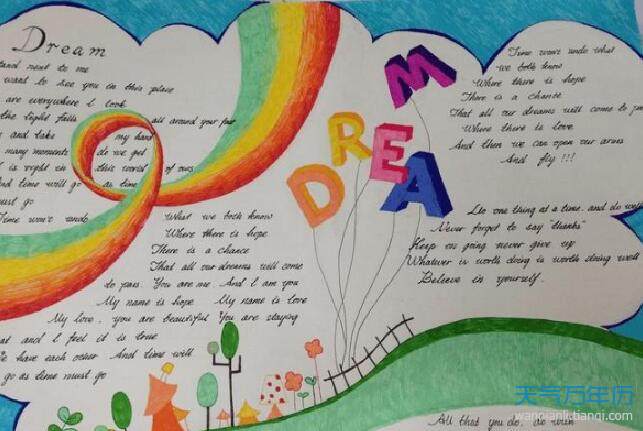 Dream
and next to me
want to see you in this place
are everywhere I look
the light falls all around your feet
and take my hand
many moments do we get
is right in this world of ours
and time will go as time
must go
Time won't undo
What we both know
Where there is hope
There is a chance
That all our dreams will come
to pass. You are me. And I am you
My name is hope My name is love
My love, you are beautiful You are staying
at and I feel it is true
have each other And time will
go as time must go
DREAM
Time won't undo what
we both know
Where there is hope
There is a chance
That all our dreams will come to
Where there is love
And then we can open our arms
And fly!!!
one thing at a time, and do
Never forget to say "thanks"
Keep on going never give up
Whatever is worth doing is worth doing well
Believe in yourself.
All that you do, do with
天气万年历
wannianli.tianqi.com